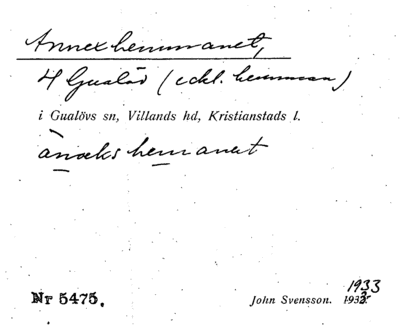 Annexhemmanet,
4 Gualöv (eckl. hemman)
i Gualövs sn, Villands hd, Kristianstads l.
ànæks hemanet
1933
Nr 5475. John Svensson. 1932